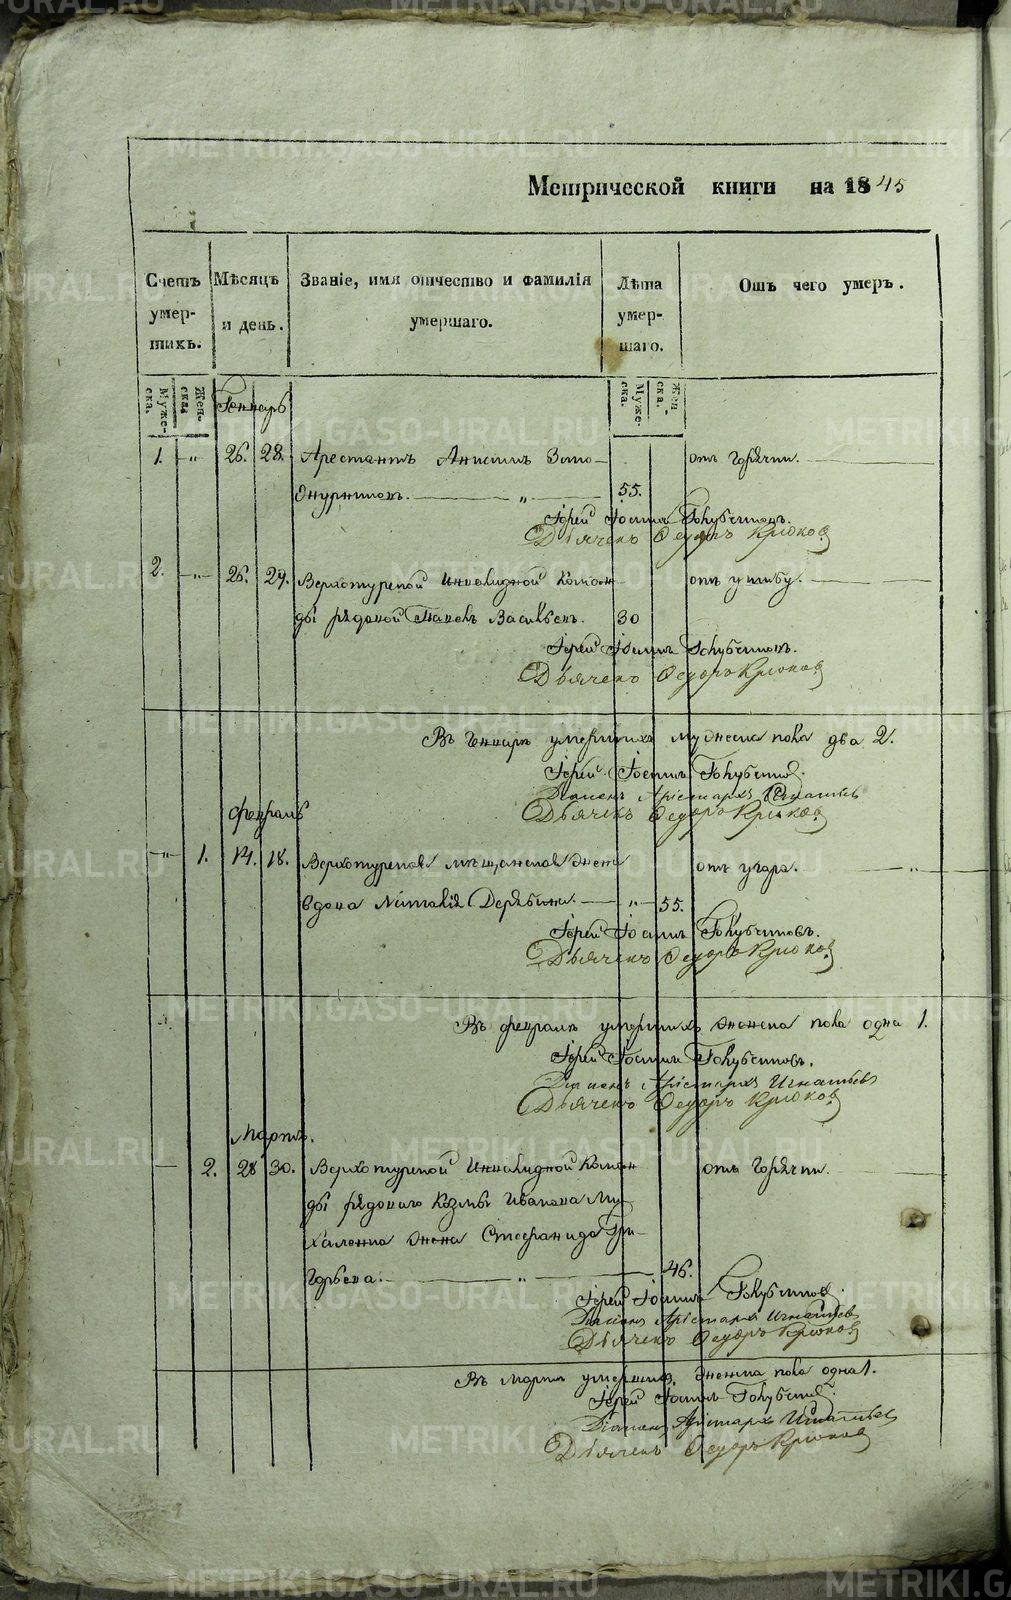 Метрической книги на 1845
Счетъ умершихъ.
Мѣсяцъ и день.
Званіе, имя отчество и фамилія умершаго.
Лѣта умершаго.
Отъ чего умеръ.
Мужеска. Женска.
Мужеска. Женска.
Генваръ
1. „ 26. 28. Арестантъ Анисимъ
55. отъ горячки.
Іерей Іоаннъ Голубчиковъ.
Дьячекъ Федоръ Крюковъ
2. „ 26. 29. Верхотурской Инвалидной Коман-
отъ ушибу.
ды рядовой Павелъ Васильевъ. 30
Іерей Іоаннъ Голубчиковъ.
Дьячекъ Федоръ Крюковъ
Въ Генварѣ умершихъ мужеска пола два 2.
Іерей Іоаннъ Голубчиковъ.
Діаконъ Арістархъ Игнатьевъ
Дьячекъ Федоръ Крюковъ
Февраль
„ 1. 14. 18. Верхотурская мѣщанская жена
отъ угара. „
вдова Дерябина. „ 55.
Іерей Іоаннъ Голубчиковъ.
Дьячекъ Федоръ Крюковъ
Въ февралѣ умершихъ женска пола одна 1.
Іерей Іоаннъ Голубчиковъ.
Діаконъ Арістархъ Игнатьевъ
Дьячекъ Федоръ Крюковъ
Мартъ.
2. 28 30. Верхотурской Инвалидной Коман
отъ горячки.
ды рядоваго Козмы Иванова Ми-
жена Стефанида Гри-
горьева. „ 46.
Іерей Іоаннъ Голубчиковъ.
Діаконъ Арістархъ Игнатьевъ
Дьячекъ Федоръ Крюковъ
Въ Мартѣ умершихъ женска пола одна 1.
Іерей Іоаннъ Голубчиковъ.
Діаконъ Арістархъ Игнатьевъ
Дьячекъ Федоръ Крюковъ
METRIKI.GASO-URAL.RU